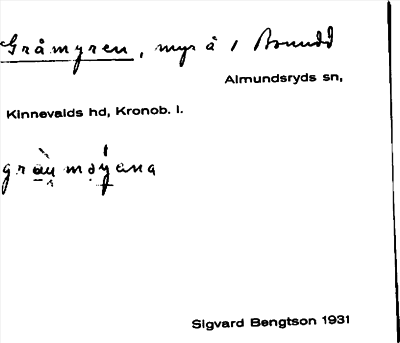 Gråmyren, myr å 1
Almundsryds sn,
Kinnevalds hd, Kronob. l.
Sigvard Bengtson 1931